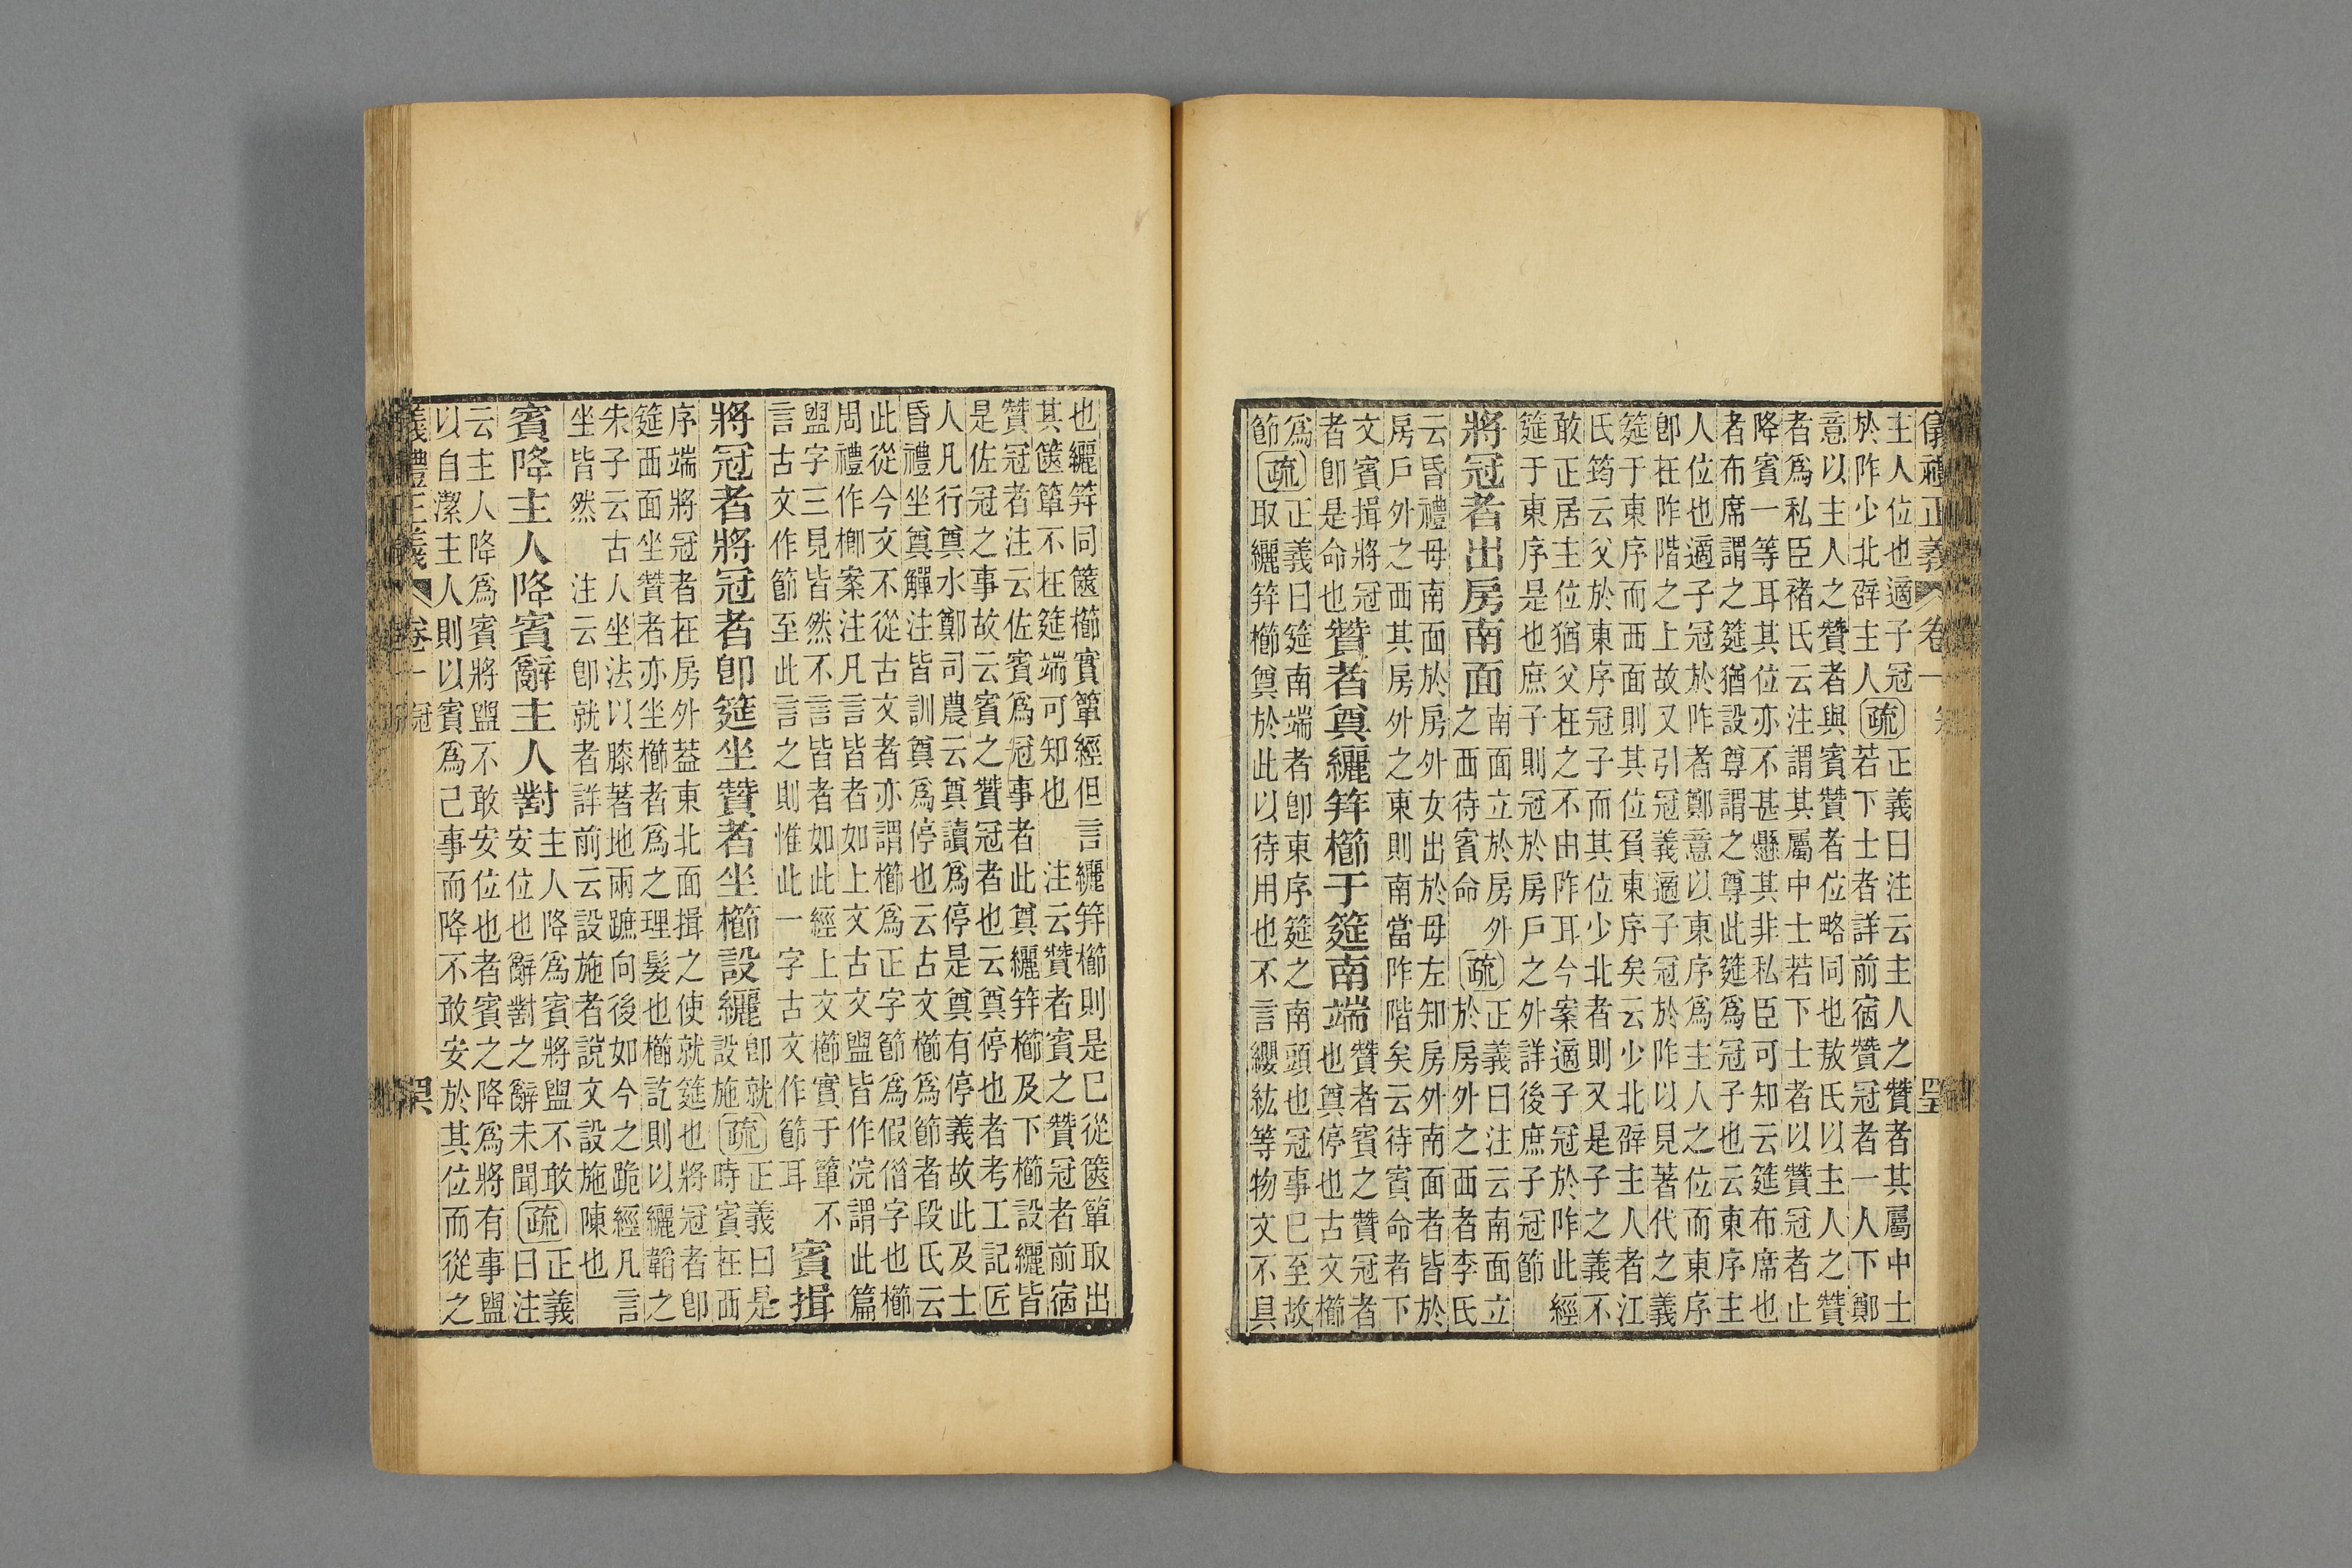 儀禮正義 卷一
主人位也適子冠疏正義曰注云主人之贊者其屬中士
於阼少北辟主人疏若下士者詳前宿贊冠者一人下鄭
意以主人之贊者與賓贊者位略同也敖氏以主人之贊
者爲私臣褚氏云注謂其屬中士若下士者以贊冠者止
降賓一等耳其位亦不甚懸其非私臣可知云筵布席也
者布席謂之筵猶設尊謂之尊此筵爲冠子也云東序主
人位也適子冠於阼者鄭意以東序爲主人之位而東序
卽在阼階之上故又引冠義適子冠於阼以見著代之義
筵于東序而西面則其位負東序矣云少北辟主人者江
氏筠云父於東序冠子而其位少北者則又是子之義不
敢正居主位猶父在之不由阼耳今案適子冠於阼此經
筵于東序是也庶子則冠於房戶之外詳後庶子冠節
將冠者出房南面南面立於房外
之西待賓命疏正義曰注云南面立
於房外之西者李氏
云昏禮母南面於房外女出於母左知房外南面者皆於
房戶外之西其房外之東則南當阼階矣云待賓命者下
文賓揖將冠
者卽是命也贊者奠纚筓櫛于筵南端贊者賓之贊冠者
也奠停也古文櫛
爲
節疏正義曰筵南端者卽東序筵之南頭也冠事已至故
取纚筓櫛奠於此以待用也不言纓紘等物文不具
也纚筓同篋櫛實簞經但言纚筓櫛則是已從篋簞取出
其篋簞不在筵端可知也 注云贊者賓之贊冠者前宿
贊冠者注云佐賓爲冠事者此奠纚筓櫛及下櫛設纚皆
是佐冠之事故云賓之贊冠者也云奠停也者考工記匠
人凡行奠水鄭司農云奠讀爲停是奠有停義故此及士
昏禮坐奠觶注皆訓奠爲停也云古文櫛爲節者段氏云
此從今文不從古文者亦謂櫛爲正字節爲假借字也櫛
周禮作楖案注凡言皆者如上文古文盥皆作浣謂此篇
盥字三見皆然不言皆者如此經上文櫛實于簞不
言古文作節至此言之則惟此一字古文作節耳 賓揖
將冠者將冠者卽筵坐贊者坐櫛設纚卽就
設施疏正義曰是
時賓在西
序端將冠者在房外蓋東北面揖之使就筵也將冠者卽
筵西面坐贊者亦坐櫛者爲之理髮也櫛訖則以纚韜之
朱子云古人坐法以膝著地兩蹠向後如今之跪經凡言
坐皆然 注云卽就者詳前云設施者說文設施陳也
賓降主人降賓辭主人對主人降爲賓將盥不敢
安位也辭對之辭未聞疏正義
曰注
云主人降爲賓將盥不敢安位也者賓之降爲將有事盥
以自潔主人則以賓爲己事而降不敢安於其位而從之
義禮正義 卷一 冠